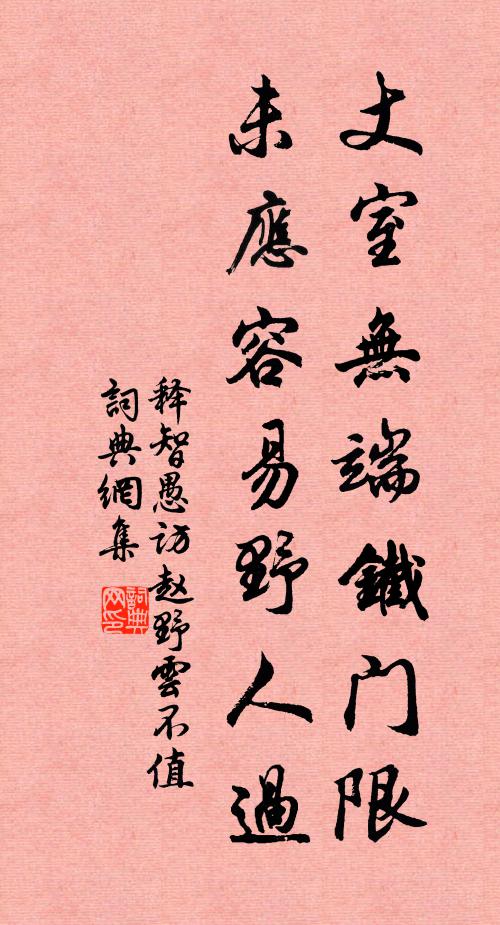 丈室無端鐵门限
未應容易野人過
释智愚访赵野雲不值
詞典網集
詞典网印